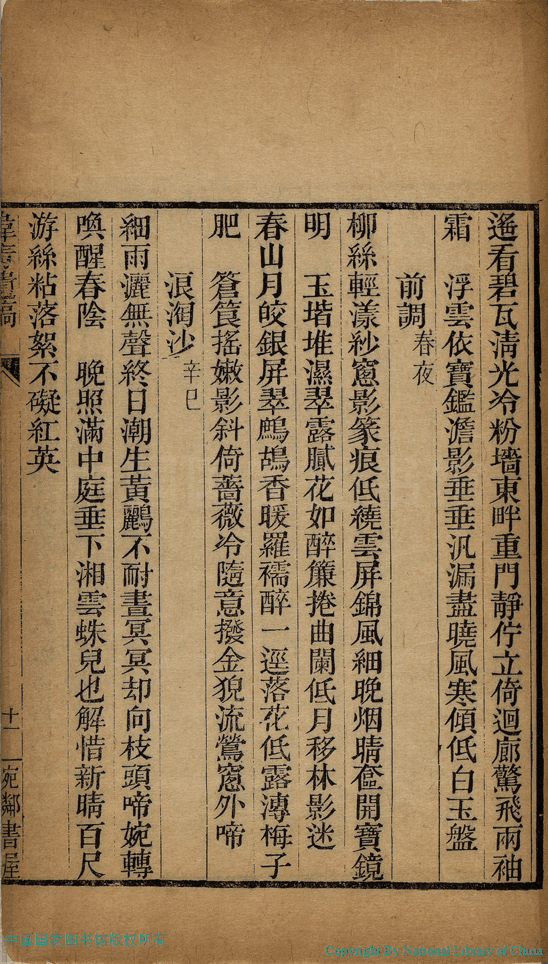 遙看碧瓦淸光冷粉墻東畔重門靜佇立倚迴廊驚飛兩袖
霜　浮雲依寶鑑澹影垂垂汎漏盡曉風寒傾低白玉盤
前調 春夜
柳絲輕漾紗窻影篆痕低繞雲屏錦風細晚烟晴奩開寶鏡
明　玉堦堆濕翠露膩花如醉簾捲曲闌低月移林影迷
春山月皎銀屏翠鷓鴣香暖羅襦醉一逕落花低露漙梅子
肥　簹筤搖嫩影斜倚薔薇冷隨意撥金猊流鶯窻外啼
浪淘沙 辛巳
細雨灑無聲終日潮生黃鸝不耐晝冥冥却向枝頭啼婉轉
喚醒春陰　晚照滿中庭垂下湘雲蛛兒也解惜新晴百尺
游絲粘落絮不礙紅英
十一
宛鄰書屋
中國國家圖書館版權所有
Copyright By National Library of China